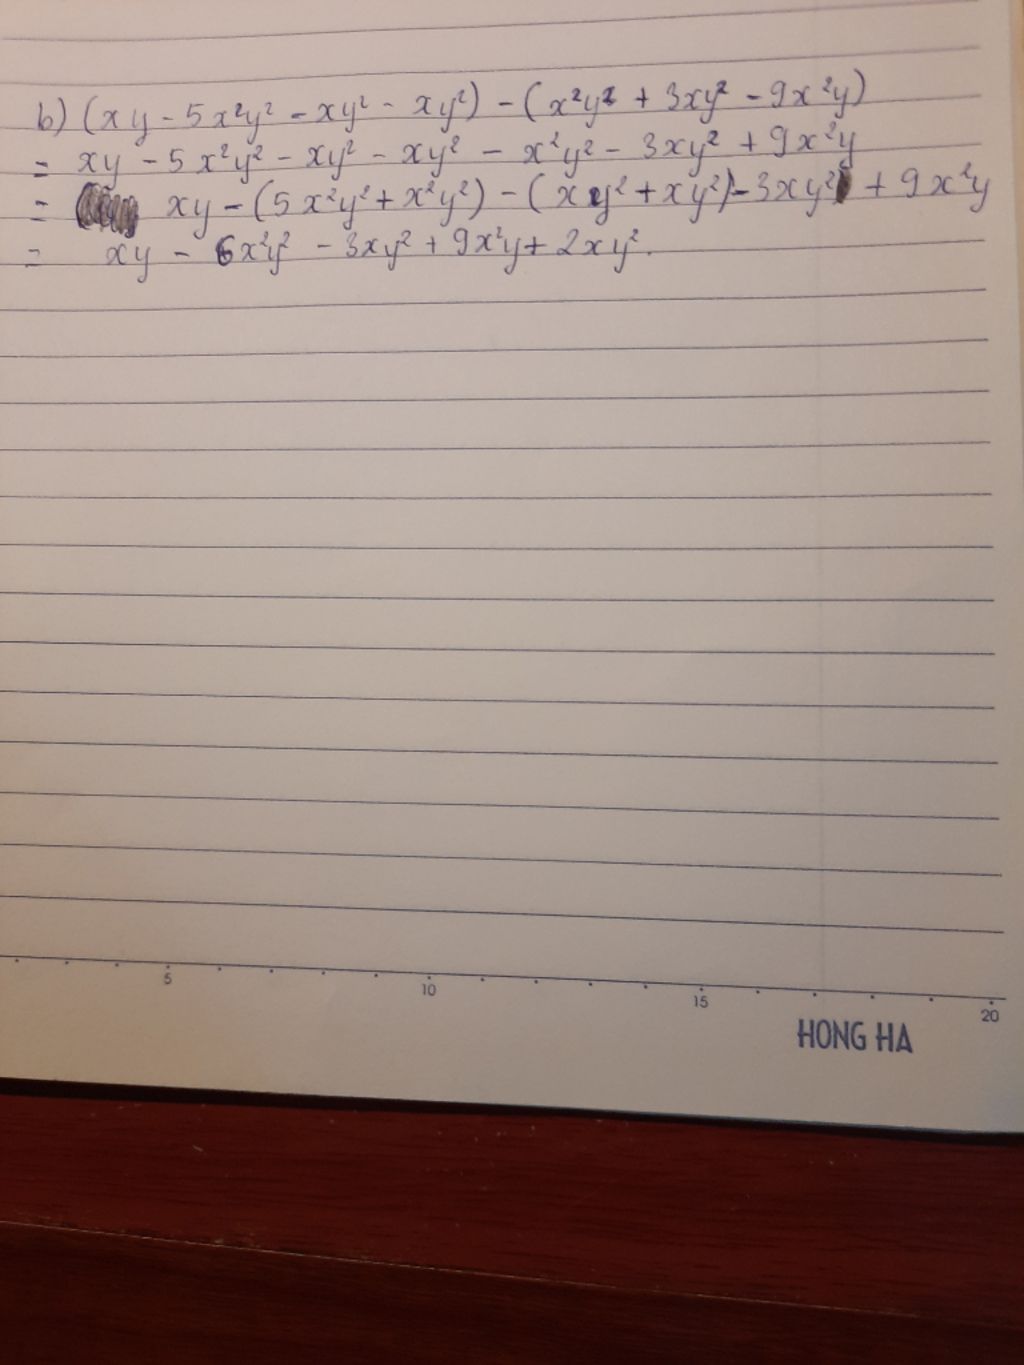 b) (xy - 5x²y² - xy² - xy²) - (x²y² + 3xy² - 9x²y)
= xy - 5x²y² - xy² - xy² - x²y² - 3xy² + 9x²y
= xy - (5x²y² + x²y²) - (xy² + xy²) - 3xy² + 9x²y
= xy - 6x²y² - 3xy² + 9x²y + 2xy².
5 10 15 20
HONG HA